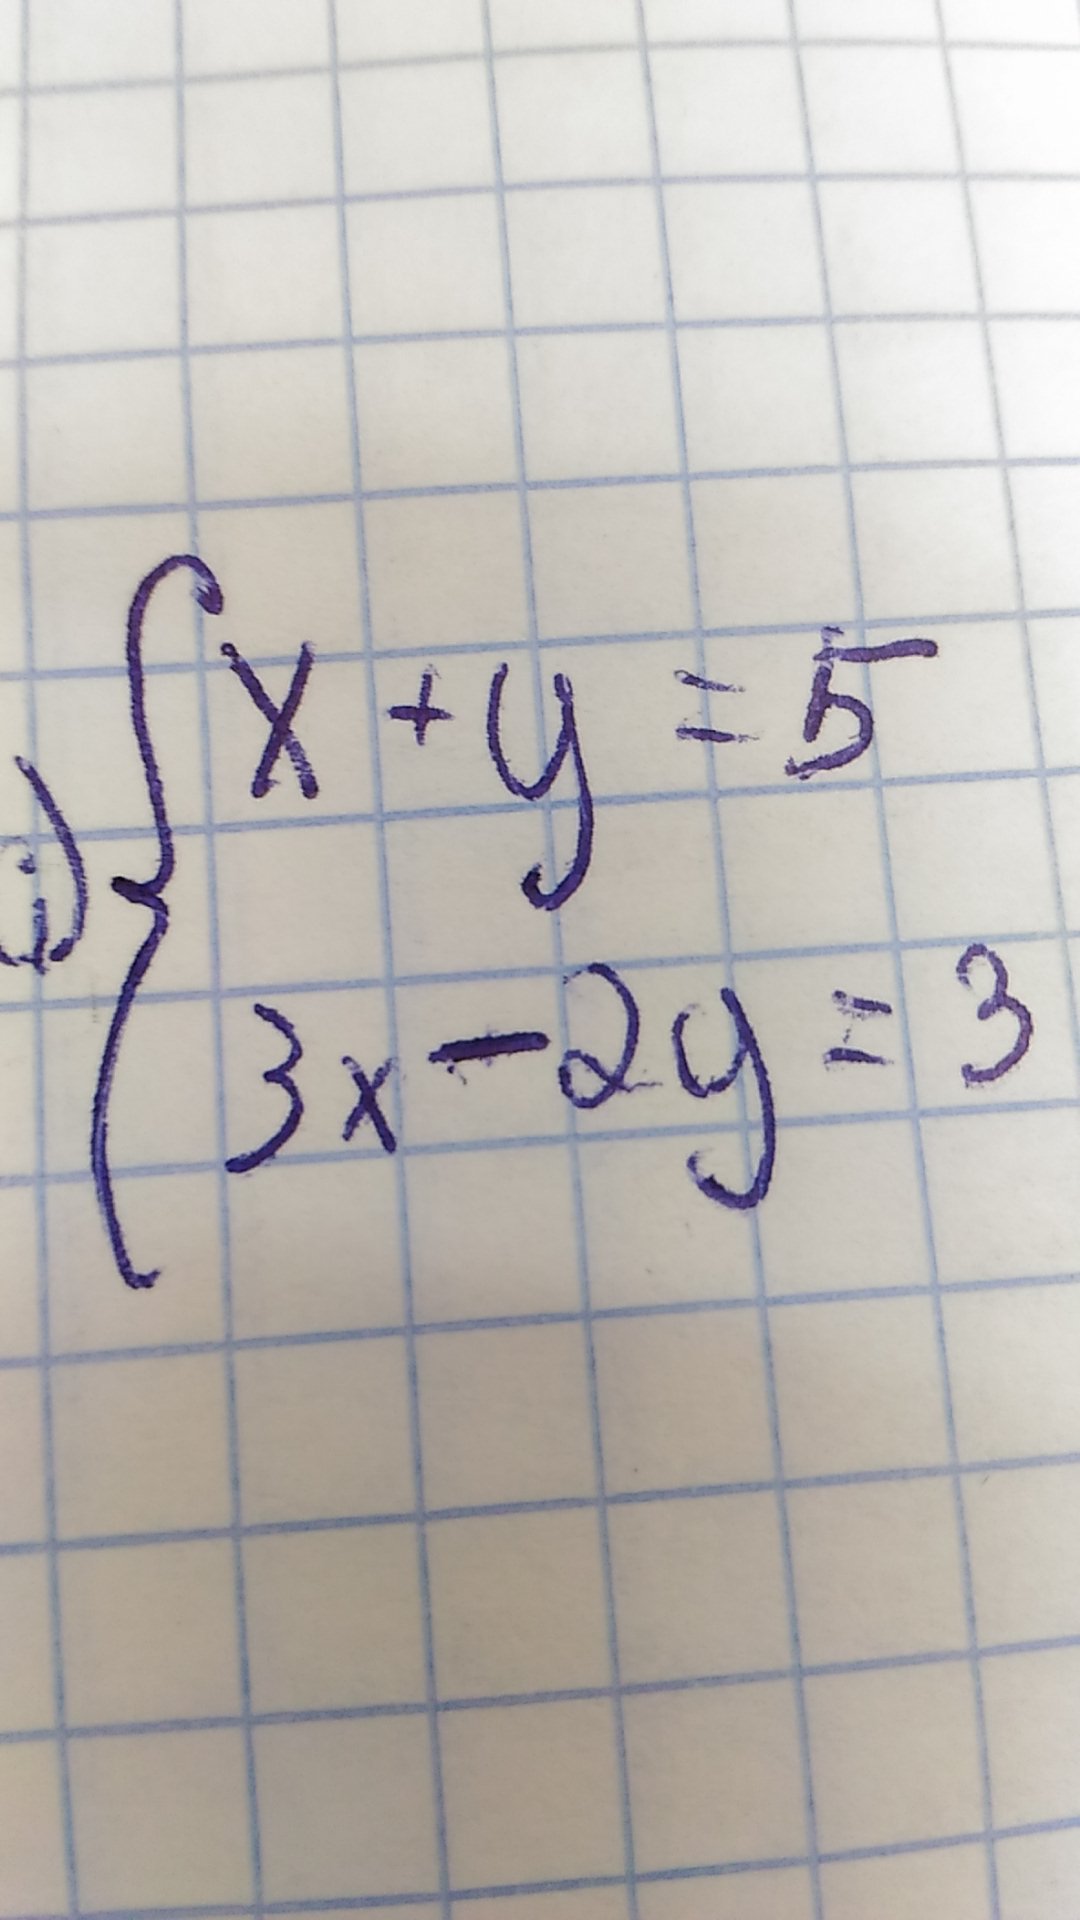 x + y = 5
3x - 2y = 3